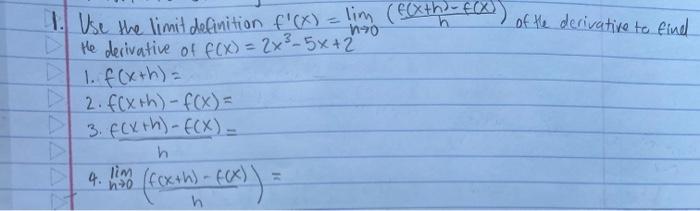 1. Use the limit definition f'(x) = lim h→0 (f(x+h)-f(x) / h) of the derivative to find
the derivative of f(x) = 2x³-5x+2
1. f(x+h) =
2. f(x+h) - f(x) =
3. f(x+h) - f(x) / h =
4. lim h→0 (f(x+h) - f(x) / h) =